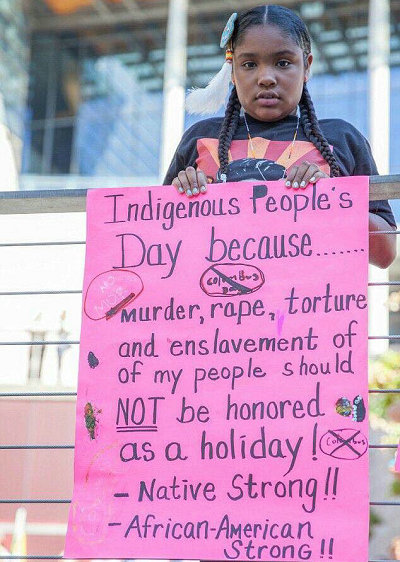 Indigenous People's
Day because.......
Columbus
Day
Murder, rape, torture
and enslavement of
of my people should
NOT be honored
as a holiday!
Columbus
- Native Strong!!
- African-American
Strong!!